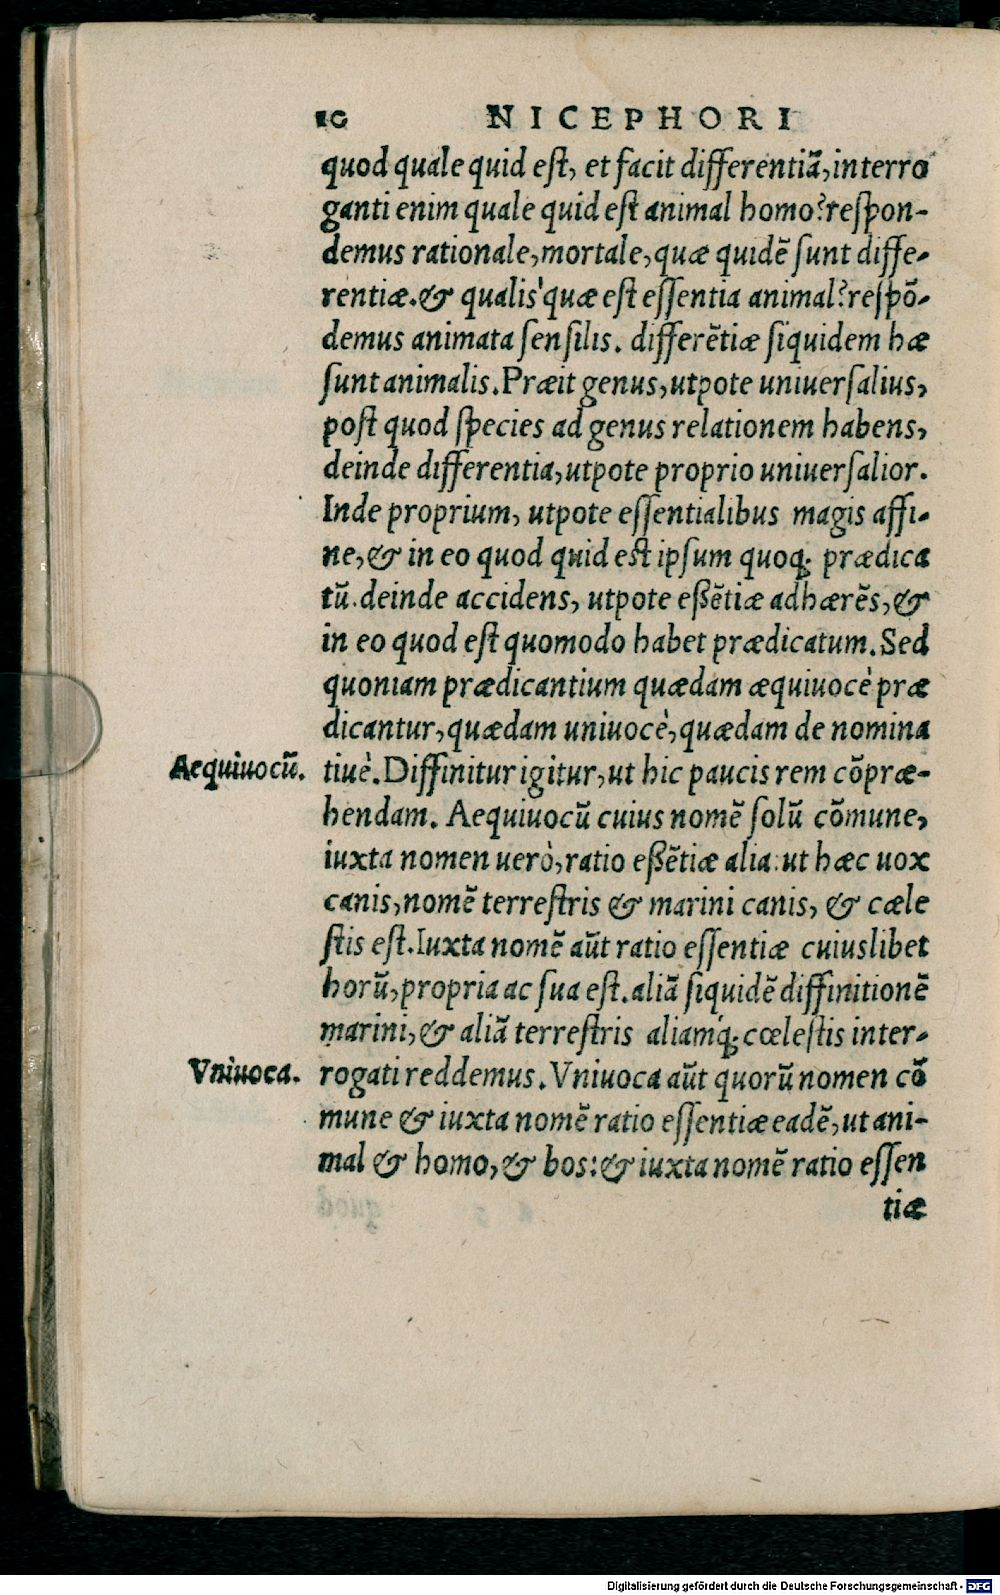 10 NICEPHORI
quod quale quid est, et facit differentiã, interro
ganti enim quale quid est animal homo? respon-
demus rationale, mortale, quæ quidẽ sunt diffe-
rentiæ. & qualis'quæ est essentia animal? respõ-
demus animata sensilis. differẽtiæ siquidem hæ
sunt animalis. Præit genus, utpote uniuersalius,
post quod species ad genus relationem habens,
deinde differentia, utpote proprio uniuersalior.
Inde proprium, utpote essentialibus magis affi-
ne, & in eo quod quid est ipsum quoq; prædica
tũ. deinde accidens, utpote eßẽtiæ adhærẽs, &
in eo quod est quomodo habet prædicatum. Sed
quoniam prædicantium quædam æquiuocè præ
dicantur, quædam uniuocè, quædam de nomina
Aequiuocũ. tiuè. Diffinitur igitur, ut hic paucis rem cõpræ-
hendam. Aequiuocũ cuius nomẽ solũ cõmune,
iuxta nomen uerò, ratio eßẽtiæ alia: ut hæc uox
canis, nomẽ terrestris & marini canis, & cæle
stis est. Iuxta nomẽ aũt ratio essentiæ cuiuslibet
horũ, propria ac sua est. aliã siquidẽ diffinitionẽ
marini, & aliã terrestris aliamq́; cœlestis inter-
Vniuoca. rogati reddemus. Vniuoca aũt quorũ nomen cõ
mune & iuxta nomẽ ratio essentiæ eadẽ, ut ani-
mal & homo, & bos: & iuxta nomẽ ratio essen
tiæ
Digitalisierung gefördert durch die Deutsche Forschungsgemeinschaft - DFG